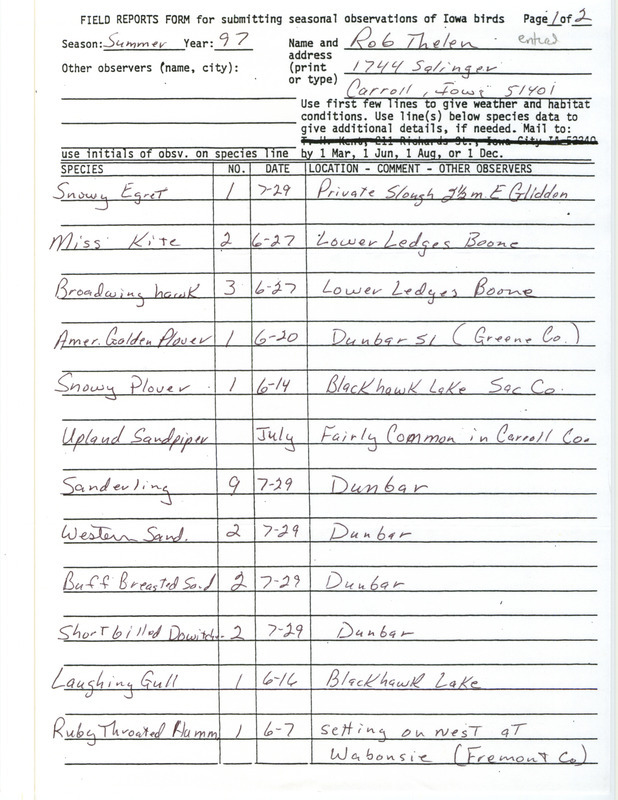 FIELD REPORTS FORM for submitting seasonal observations of Iowa birds Page 1 of 2
Season: Summer Year: 97 Name and Rob Thelen
address
Other observers (name, city): (print 1744 Salinger
or type) Carroll, Iowa 51401
Use first few lines to give weather and habitat
conditions. Use line(s) below species data to
give additional details, if needed. Mail to:
T. H. Kent, 211 Richards St., Iowa City IA 52240
use initials of obsv. on species line by 1 Mar, 1 Jun, 1 Aug, or 1 Dec.
SPECIES NO. DATE LOCATION - COMMENT - OTHER OBSERVERS
Snowy Egret 1 7-29 Private Slough 2½ m. E Glidden
Miss Kite 2 6-27 Lower Ledges Boone
Broadwing hawk 3 6-27 Lower Ledges Boone
Amer. Golden Plover 1 6-20 Dunbar Sl (Greene Co.)
Snowy Plover 1 6-14 Blackhawk Lake Sac Co.
Upland Sandpiper July Fairly Common in Carroll Co.
Sanderling 9 7-29 Dunbar
Western Sand. 2 7-29 Dunbar
Buff Breasted Sand 2 7-29 Dunbar
Short billed Dowitch. 2 7-29 Dunbar
Laughing Gull 1 6-16 Blackhawk Lake
Ruby Throated Humm 1 6-7 setting on nest at
Wabonsie (Fremont Co)